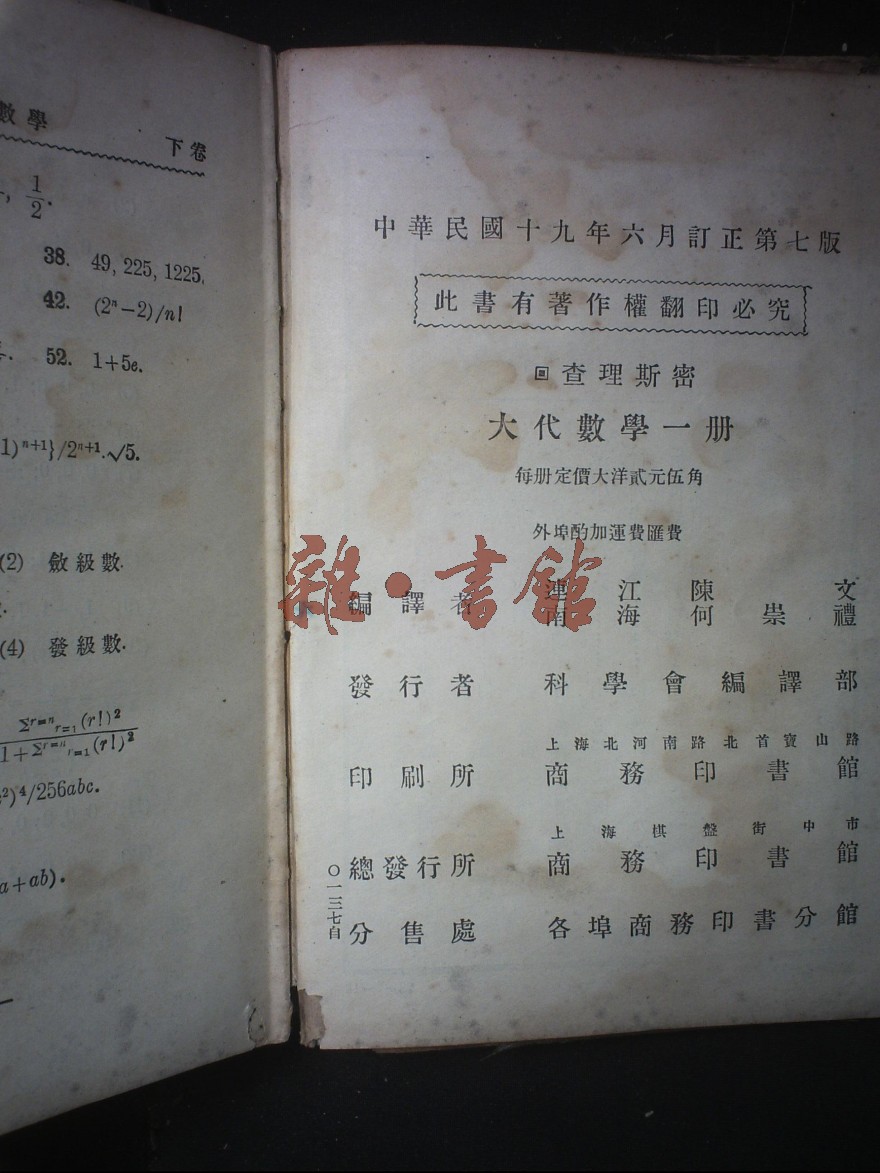 數學
下卷
1/2.
38. 49, 225, 1225.
42. (2ⁿ−2)/n!
52. 1+5e.
1)ⁿ⁺¹}/2ⁿ⁺¹.√5.
(2) 斂級數.
(4) 發級數.
Σʳ⁼ⁿᵣ₌₁(r!)²
1+Σʳ⁼ⁿᵣ₌₁(r!)²
²)⁴/256abc.
a+ab).
中華民國十九年六月訂正第七版
此書有著作權翻印必究
回查理斯密
大代數學一册
每册定價大洋貳元伍角
外埠酌加運費匯費
雜·書館
編譯者
連江陳文
南海何崇禮
發行者 科學會編譯部
上海北河南路北首寶山路
印刷所 商務印書館
上海棋盤街中市
總發行所 商務印書館
分售處 各埠商務印書分館
〇一三七自